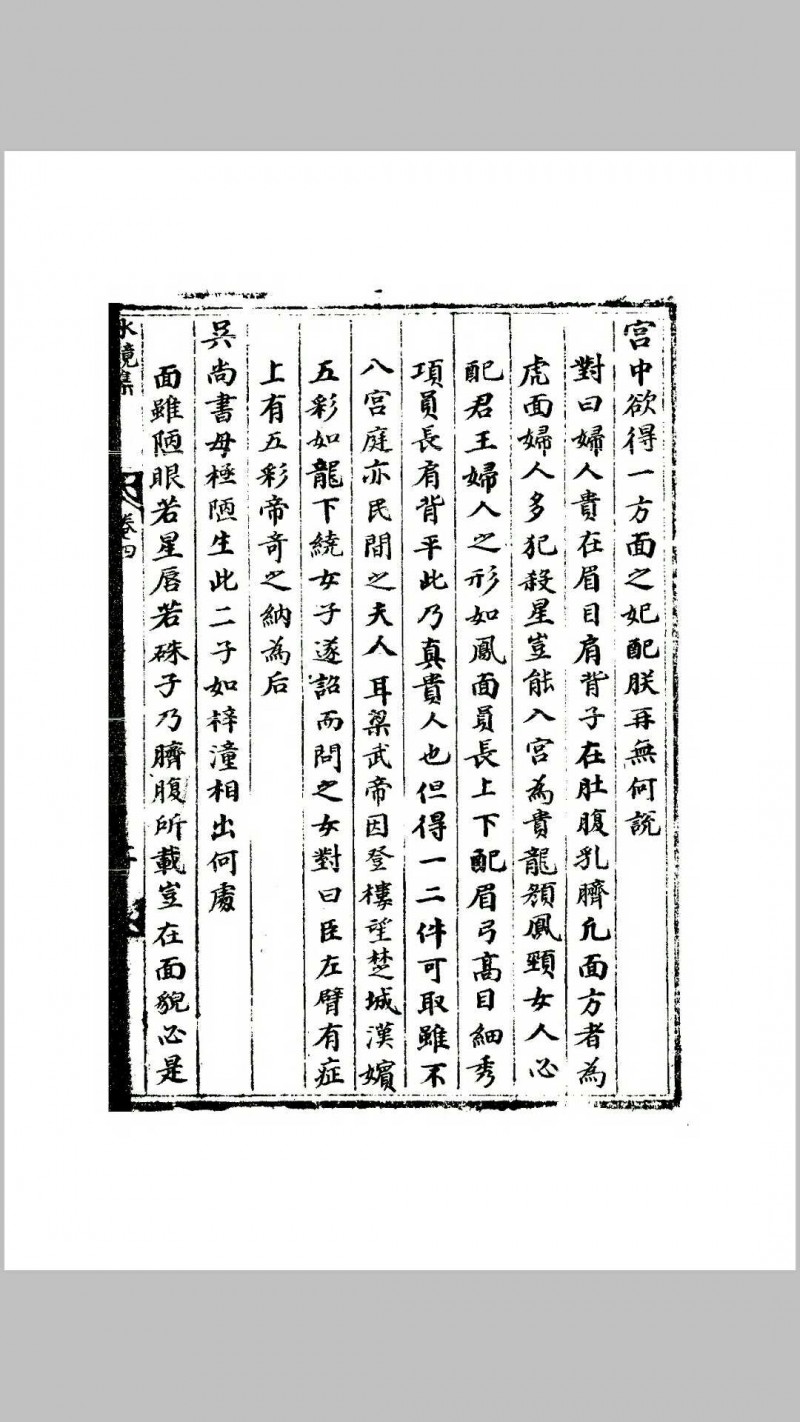 宮中欲得一方面之妃配朕再無何說
對曰婦人貴在眉目肩背子在肚腹乳臍凢面方者為
虎面婦人多犯殺星豈能入宮為貴龍顏鳳頸女人必
配君王婦人之形如鳳面員長上下配眉弓高目細秀
項員長肩背平此乃真貴人也但得一二件可取雖不
入宮庭亦民間之夫人耳梁武帝因登樓望楚城漢嬪
五彩如龍下繞女子遂詔而問之女對曰臣左臂有症
上有五彩帝奇之納為后
吳尚書母極陋生此二子如梓潼相出何處
面雖陋眼若星唇若硃子乃臍腹所載豈在面貌必是
水鏡集
卷四